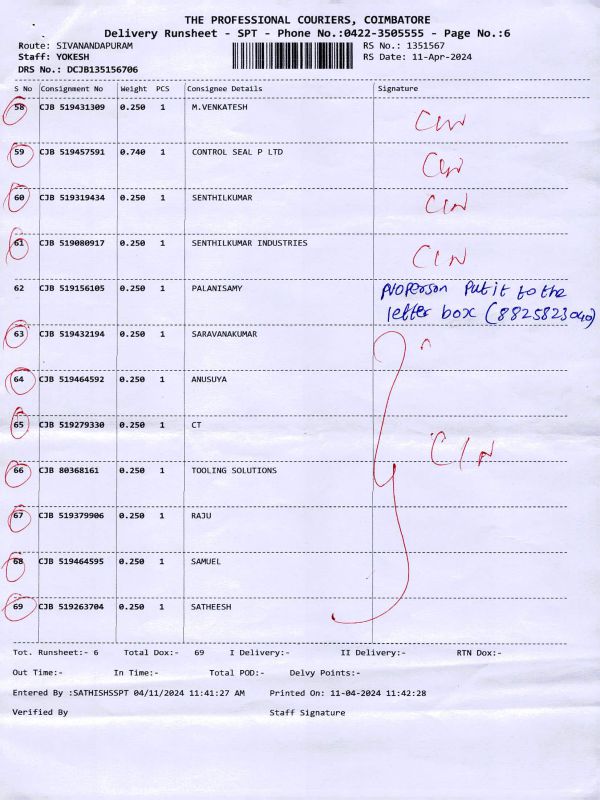 THE PROFESSIONAL COURIERS, COIMBATORE
Delivery Runsheet - SPT - Phone No.:0422-3505555 - Page No.:6
Route: SIVANANDAPURAM RS No.: 1351567
Staff: YOKESH RS Date: 11-Apr-2024
DRS No.: DCJB135156706
S No Consignment No Weight PCS Consignee Details Signature
58 CJB 519431309 0.250 1 M.VENKATESH CIN
59 CJB 519457591 0.740 1 CONTROL SEAL P LTD CIN
60 CJB 519319434 0.250 1 SENTHILKUMAR CIN
61 CJB 519080917 0.250 1 SENTHILKUMAR INDUSTRIES CIN
62 CJB 519156105 0.250 1 PALANISAMY NO Person Put it to the
letter box (8825823040)
63 CJB 519432194 0.250 1 SARAVANAKUMAR
64 CJB 519464592 0.250 1 ANUSUYA
65 CJB 519279330 0.250 1 CT CIN
66 CJB 80368161 0.250 1 TOOLING SOLUTIONS
67 CJB 519379906 0.250 1 RAJU
68 CJB 519464595 0.250 1 SAMUEL
69 CJB 519263704 0.250 1 SATHEESH
Tot. Runsheet:- 6 Total Dox:- 69 I Delivery:- II Delivery:- RTN Dox:-
Out Time:- In Time:- Total POD:- Delvy Points:-
Entered By :SATHISHSSPT 04/11/2024 11:41:27 AM Printed On: 11-04-2024 11:42:28
Verified By Staff Signature